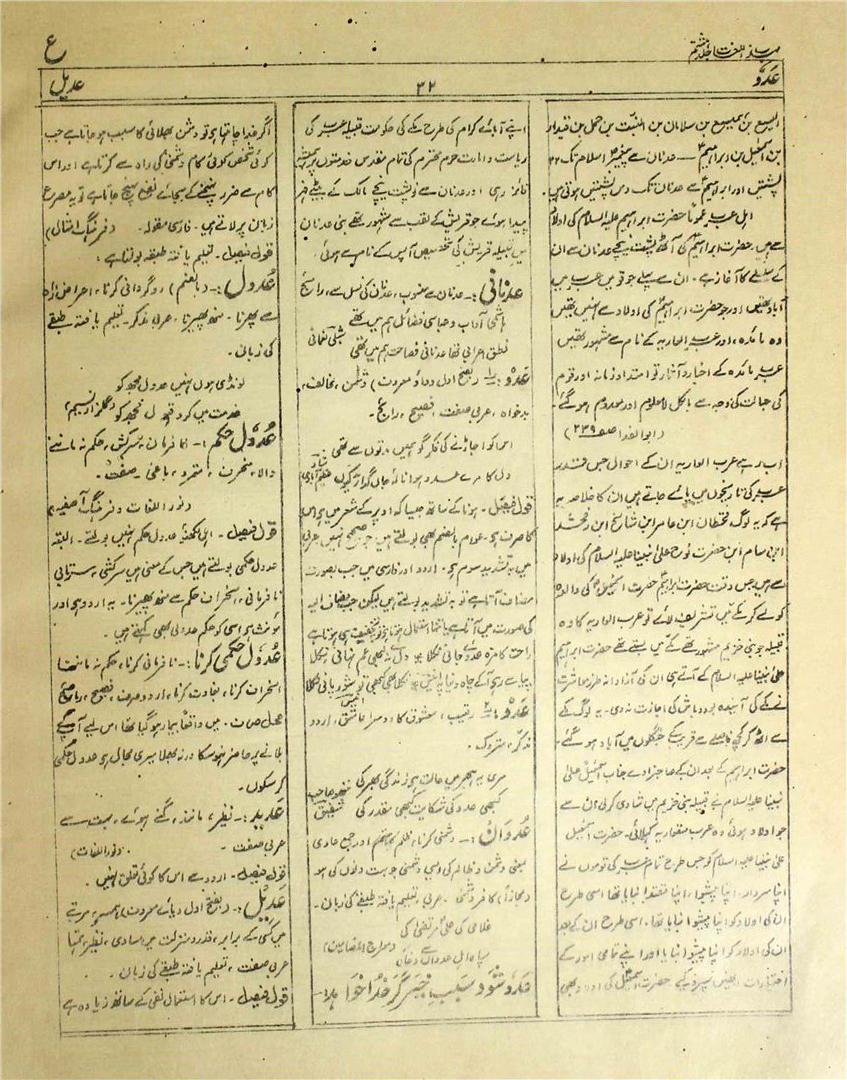 ع
مہذب اللغات جلد ہشتم
عدو
۳۲
عدیل
الیسع بن ہمیسع بن سلامان بن النبت بن حمل بن قیدار
بن اسمٰعیل بن ابراہیمؑ ـــ عدنان سے پیغمبر اسلام تک ۲۲
پشتیں اور ابراہیمؑ سے عدنان تک دس پشتیں ہوتی ہیں۔
اہل عرب عموماً حضرت ابراہیم علیہ السلام کی اولاد
سے ہیں۔ حضرت ابراہیمؑ کی آٹھ پشت نیچے عدنان سے ان
کے سلسلے کا آغاز ہے۔ ان سے پہلے جو قومیں عرب میں
آباد تھیں اور جو حضرت ابراہیمؑ کی اولاد سے نہیں تھیں
وہ بائدہ اور عرب العاربہ کے نام سے مشہور تھیں
عرب بائدہ کے اخبار و آثار تو امتداد زمانہ اور قوم
کی جہالت کی وجہ سے بالکل لا معلوم اور معدوم ہو گئے۔
(ابوالفدا صفحہ ۲۳۹)
اب رہے عرب العاربہ ان کے احوال جس قدر
عرب کی تاریخوں میں پائے جاتے ہیں ان کا خلاصہ یہ
ہے کہ یہ لوگ قحطان ابن عامر ابن شالخ ابن ارفخشد
ابن سام ابن حضرت نوح علیٰ نبینا علیہ السلام کی اولاد
سے ہیں جس وقت حضرت ابراہیم حضرت اسمٰعیل کی والدہ
کو لے کر مکے میں تشریف لائے تو عرب العاربہ کا وہ
قبیلہ جو بنی خزیم مشہور تھے مکے میں بستے تھے حضرت ابراہیم
علیٰ نبینا علیہ السلام کے آتے ہی ان کی آزادانہ طرز معاشرت
نے مکے کی آئندہ بود و باش کی اجازت نہ دی۔ یہ لوگ مکے
سے اٹھ کر کچھ فاصلے سے قریب کے جنگلوں میں آباد ہو گئے۔
حضرت ابراہیم کے بعد ان کے صاحبزادے جناب اسمٰعیل علیٰ
نبینا علیہ السلام نے قبیلہ بنی خزیم میں شادی کر لی ان سے
جو اولاد ہوئی وہ عرب مستعاربہ کہلائی۔ حضرت اسمٰعیل
علیٰ نبینا علیہ السلام کو جس طرح تمام عرب کی قوموں نے
اپنا سردار، اپنا پیشوا، اپنا مقتدا بنایا تھا اسی طرح
ان کی اولاد کو اپنا پیشوا بنایا تھا۔ اسی طرح ان کے بعد
ان کی اولاد کو اپنا پیشوا بنایا اور اپنے تمامی امور کے
اختیارات انھیں سپرد کیے حضرت اسمٰعیل کی اولاد بھی
اپنے آبائے کرام کی طرح مکے کی حکومت قبیلہ عرب کی
ریاست و امانت حرم محترم کی تمام مقدس خدمتوں پر ہمیشہ
فائز رہی اور عدنان سے نو پشت نیچے مالک کے بیٹے فہر
پیدا ہوئے جو قریش کے لقب سے مشہور تھے بنی عدنان
میں قبیلہ قریش کی تخصیص آپس کے نام سے ہوئی۔
عدنانی :۔ عدنان سے منسوب، عدنان کی نسل سے، رائج
ہاشمی آداب و عباسی فضائل ہم میں تھے
نطق اعرابی تھا عدنانی فصاحت ہم میں تھی شبلی نعمانی
عَدُو :۔ (۱) (بفتح اول و واؤ معروف) دشمن، مخالف،
بدخواہ، عربی صفت، فصیح، رائج۔
اس کو اجاڑنے کی فکر گو ہمیں، برسوں سے تھی
دل کا مرے عدو ہوا نالۂ جاں گداز کیوں شاد عظیم آبادی
قول فیصل۔ ہونا کے ساتھ جیسا کہ اوپر کے شعر میں ہی اس
کا صرف ہے۔ عوام بالضم بھی بولتے ہیں جو صحیح نہیں عربی
میں بہ تشدید سوم ہے۔ اردو اور فارسی میں جب بصورت
مضاف آتا ہے تو بہ تشدید بولتے ہیں لیکن جب مضاف الیہ
کی صورت میں آتا ہے یا تنہا استعمال ہوتا ہے تو بہ تخفیف ہی ہوتا ہے
راحت کا مزہ عدوئے جانی نکلا دل سے نہ کبھی غم نہانی نکلا
پیاسے رہے آ کے چاہ دنیا پر انیس نکلا بھی کبھی تو شور پانی نکلا انیس
عَدُو :۔ (۲) رقیب، معشوق کا دوسرا عاشق، اردو
مذکر، متروک۔
مری یہ ہجر میں حالت ہے زندگی بھر کی
کبھی عدو کی شکایت کبھی مقدر کی شفیق
عُدوان :۔ دشمنی کرنا، ظلم، ستم اور جمع عادی
بمعنی دشمن و ظالم کی ویسی دشمنی جو بہت دلوں کی ہو
(مجازاً) کافر دشمنی۔ عربی، تعلیم یافتہ طبقے کی زبان۔
غلامی کی علیؑ مرتضیٰ کی
سپاہ اہل عدوان سے دغا کی (معراج المضامین)
عَدو شَوَد سَبَبِ خَیر گَر خُدا خَواہد :۔
اگر خدا چاہتا ہے تو دشمن بھلائی کا سبب ہو جاتا ہے جب
کوئی شخص کوئی کام دشمنی کی راہ سے کرتا ہے اور اس
کام سے ضرر پہنچنے کے بجائے نفع پہنچ جاتا ہے تو یہ مصرع
زبان پر لاتے ہیں۔ فارسی مقولہ۔ (فرہنگ امثال)
قول فیصل۔ تعلیم یافتہ طبقہ بولتا ہے۔
عُدول :۔ (بالضم) روگردانی کرنا، اعراض، راہ
سے پھرنا۔ منھ پھیرنا، عربی مذکر۔ تعلیم یافتہ طبقے
کی زبان۔
لونڈی ہوں نہیں عدول مجھ کو
خدمت میں کرو قبول مجھ کو (گلزار نسیم)
عُدول حکم :۔ نافرمان، سرکش، حکم نہ ماننے
والا، منحرف، متمرد، باغی۔ صفت۔
(نور اللغات و فرہنگ آصفیہ)
قول فیصل۔ اہل لکھنؤ عدول حکم نہیں بولتے۔ البتہ
عدول حکمی بولتے ہیں جس کے معنی ہیں سرکشی، سرتابی
نافرمانی، انحراف حکم سے منھ پھیرنا۔ یہ اردو ہے اور
مؤنث ہے اسی کو حکم عدولی بھی کہتے ہیں۔
عُدول حکمی کرنا :۔ نافرمانی کرنا، حکم نہ ماننا
انحراف کرنا، بغاوت کرنا، اردو صرف، فصیح، رائج
محل صرف۔ میں واقعاً بیمار ہو گیا تھا اس لیے آپ کے
بلانے پر حاضر نہ ہو سکا ورنہ بھلا میری مجال ہے عدول حکمی
کر سکوں۔
عَدید :۔ نظیر، مانند، گنے ہوئے، بہت سے
عربی صفت۔ (نور اللغات)
قول فیصل۔ اردو سے اس کا کوئی تعلق نہیں۔
عَدیل :۔ (بفتح اول و یائے معروف) ہمسر، مرتبے
میں کسی کے برابر، قدر و منزلت میں مساوی، نظیر، ہمتا
عربی صفت، تعلیم یافتہ طبقے کی زبان۔
قول فیصل۔ اس کا استعمال نفی کے ساتھ زیادہ ہے